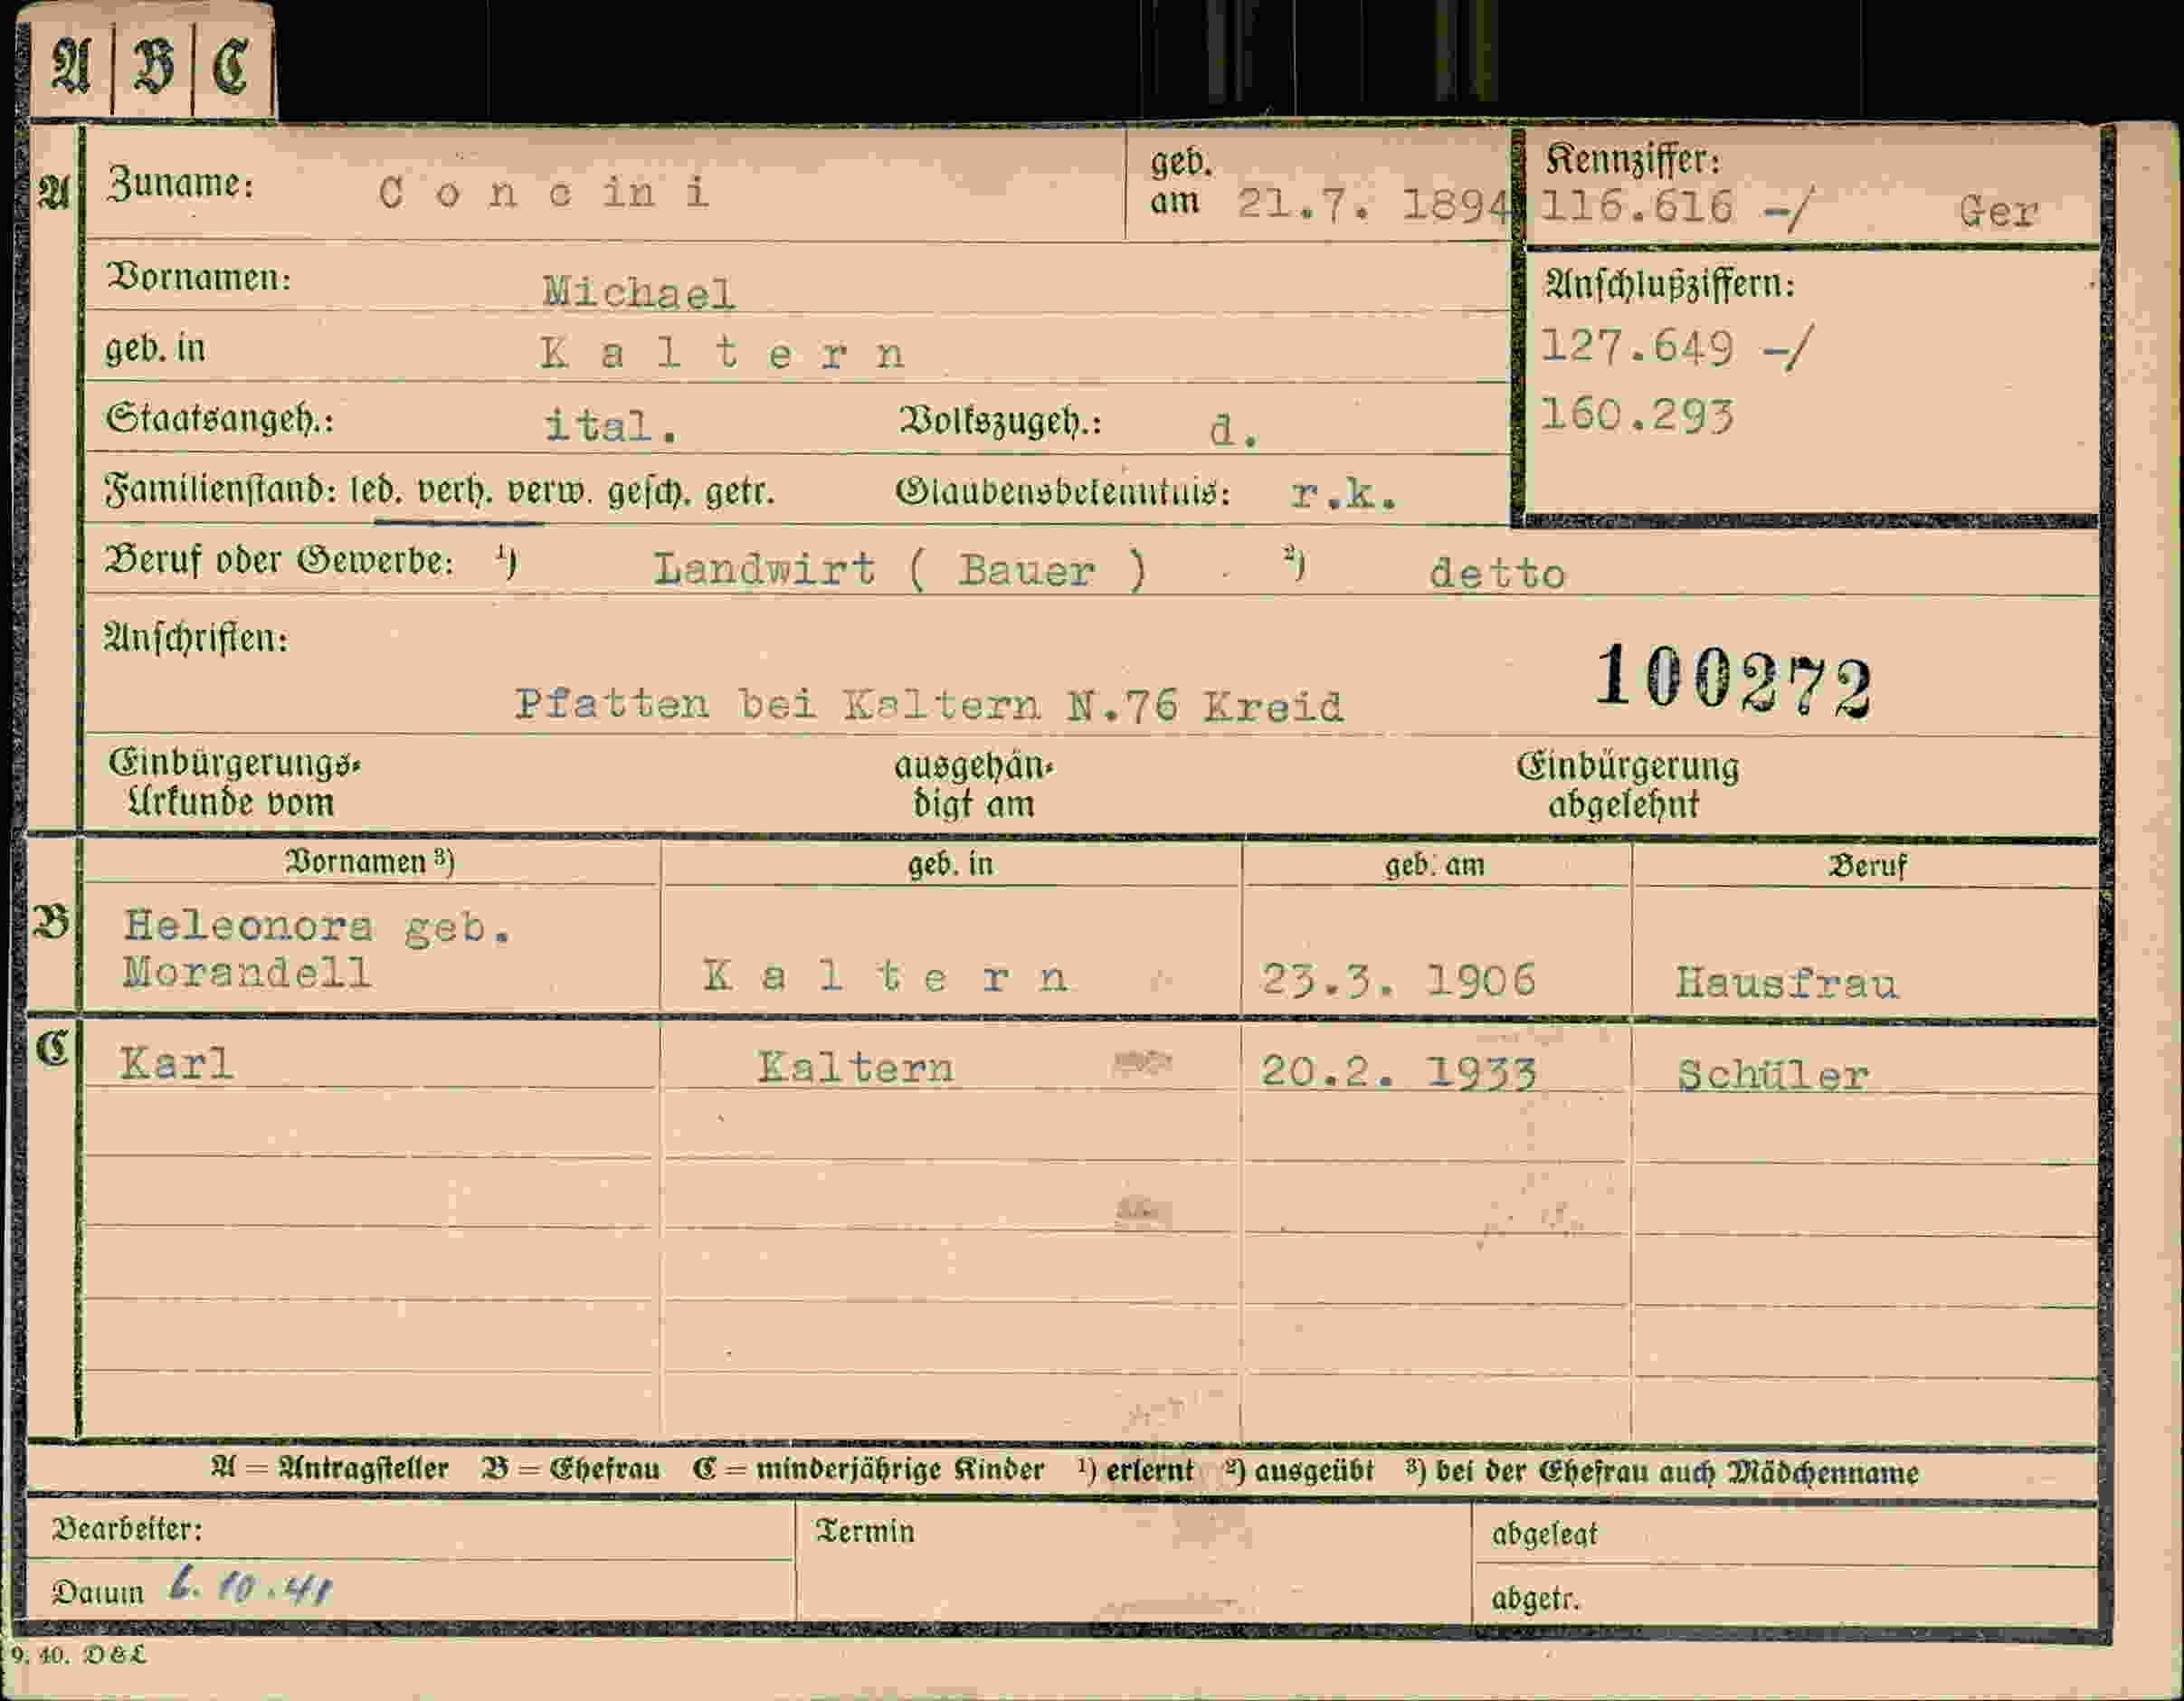 A B C
A Zuname: Concini geb. am 21.7. 1894 Kennziffer: 116.616 -/ Ger
Vornamen: Michael Anschlußziffern:
geb. in Kaltern 127.649 -/
Staatsangeh.: ital. Volkszugeh.: d. 160.293
Familienstand: led. verh. verw. gesch. getr. Glaubensbekenntnis: r.k.
Beruf oder Gewerbe: ¹) Landwirt ( Bauer ) ²) detto
Anschriften: 100272
Pfatten bei Kaltern N.76 Kreid
Einbürgerungs- ausgehän- Einbürgerung
Urkunde vom digt am abgelehnt
Vornamen ³) geb. in geb. am Beruf
B Heleonora geb.
Morandell Kaltern 23.3. 1906 Hausfrau
C Karl Kaltern 20.2. 1933 Schüler
A = Antragsteller B = Ehefrau C = minderjährige Kinder ¹) erlernt ²) ausgeübt ³) bei der Ehefrau auch Mädchenname
Bearbeiter: Termin abgelegt
Datum 6.10.41 abgetr.
9. 40. D&L